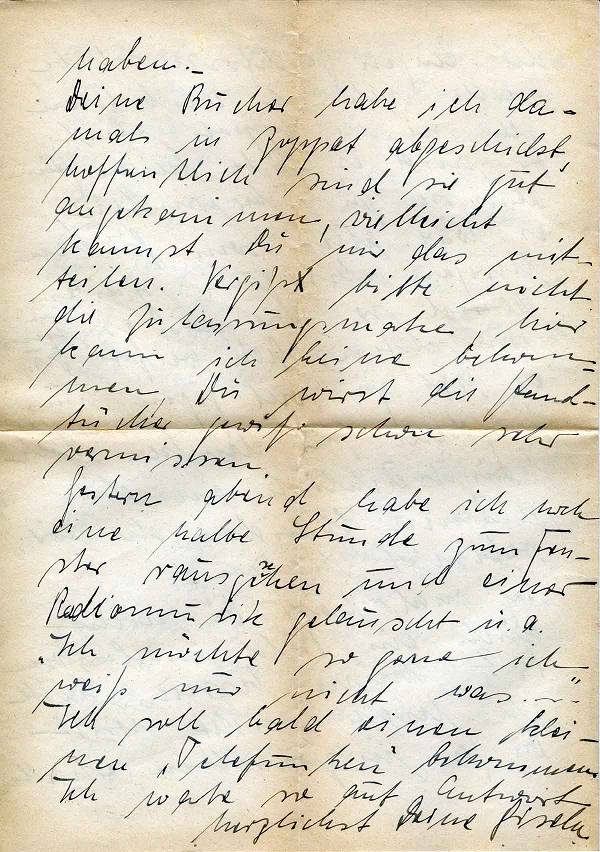 haben. –
Deine Bücher habe ich da-
mals in Zoppot abgeschickt,
hoffentlich sind sie gut
angekommen, vielleicht
kannst Du mir das mit-
teilen. Vergiß bitte nicht
die Zulassungsmarke, hier
kann ich keine bekom-
men, Du wirst die Hand-
tücher gewiß schon sehr
vermissen
Gestern abend habe ich noch
eine halbe Stunde zum Fen-
ster rausgesehen und einer
Radiomusik gelauscht u. a.
„Ich möchte so gerne ich
weiß nur nicht was..."
Ich soll bald einen klei-
nen „Telefunken" bekommen
Ich warte so auf Antwort
herzlichst Deine Gisela